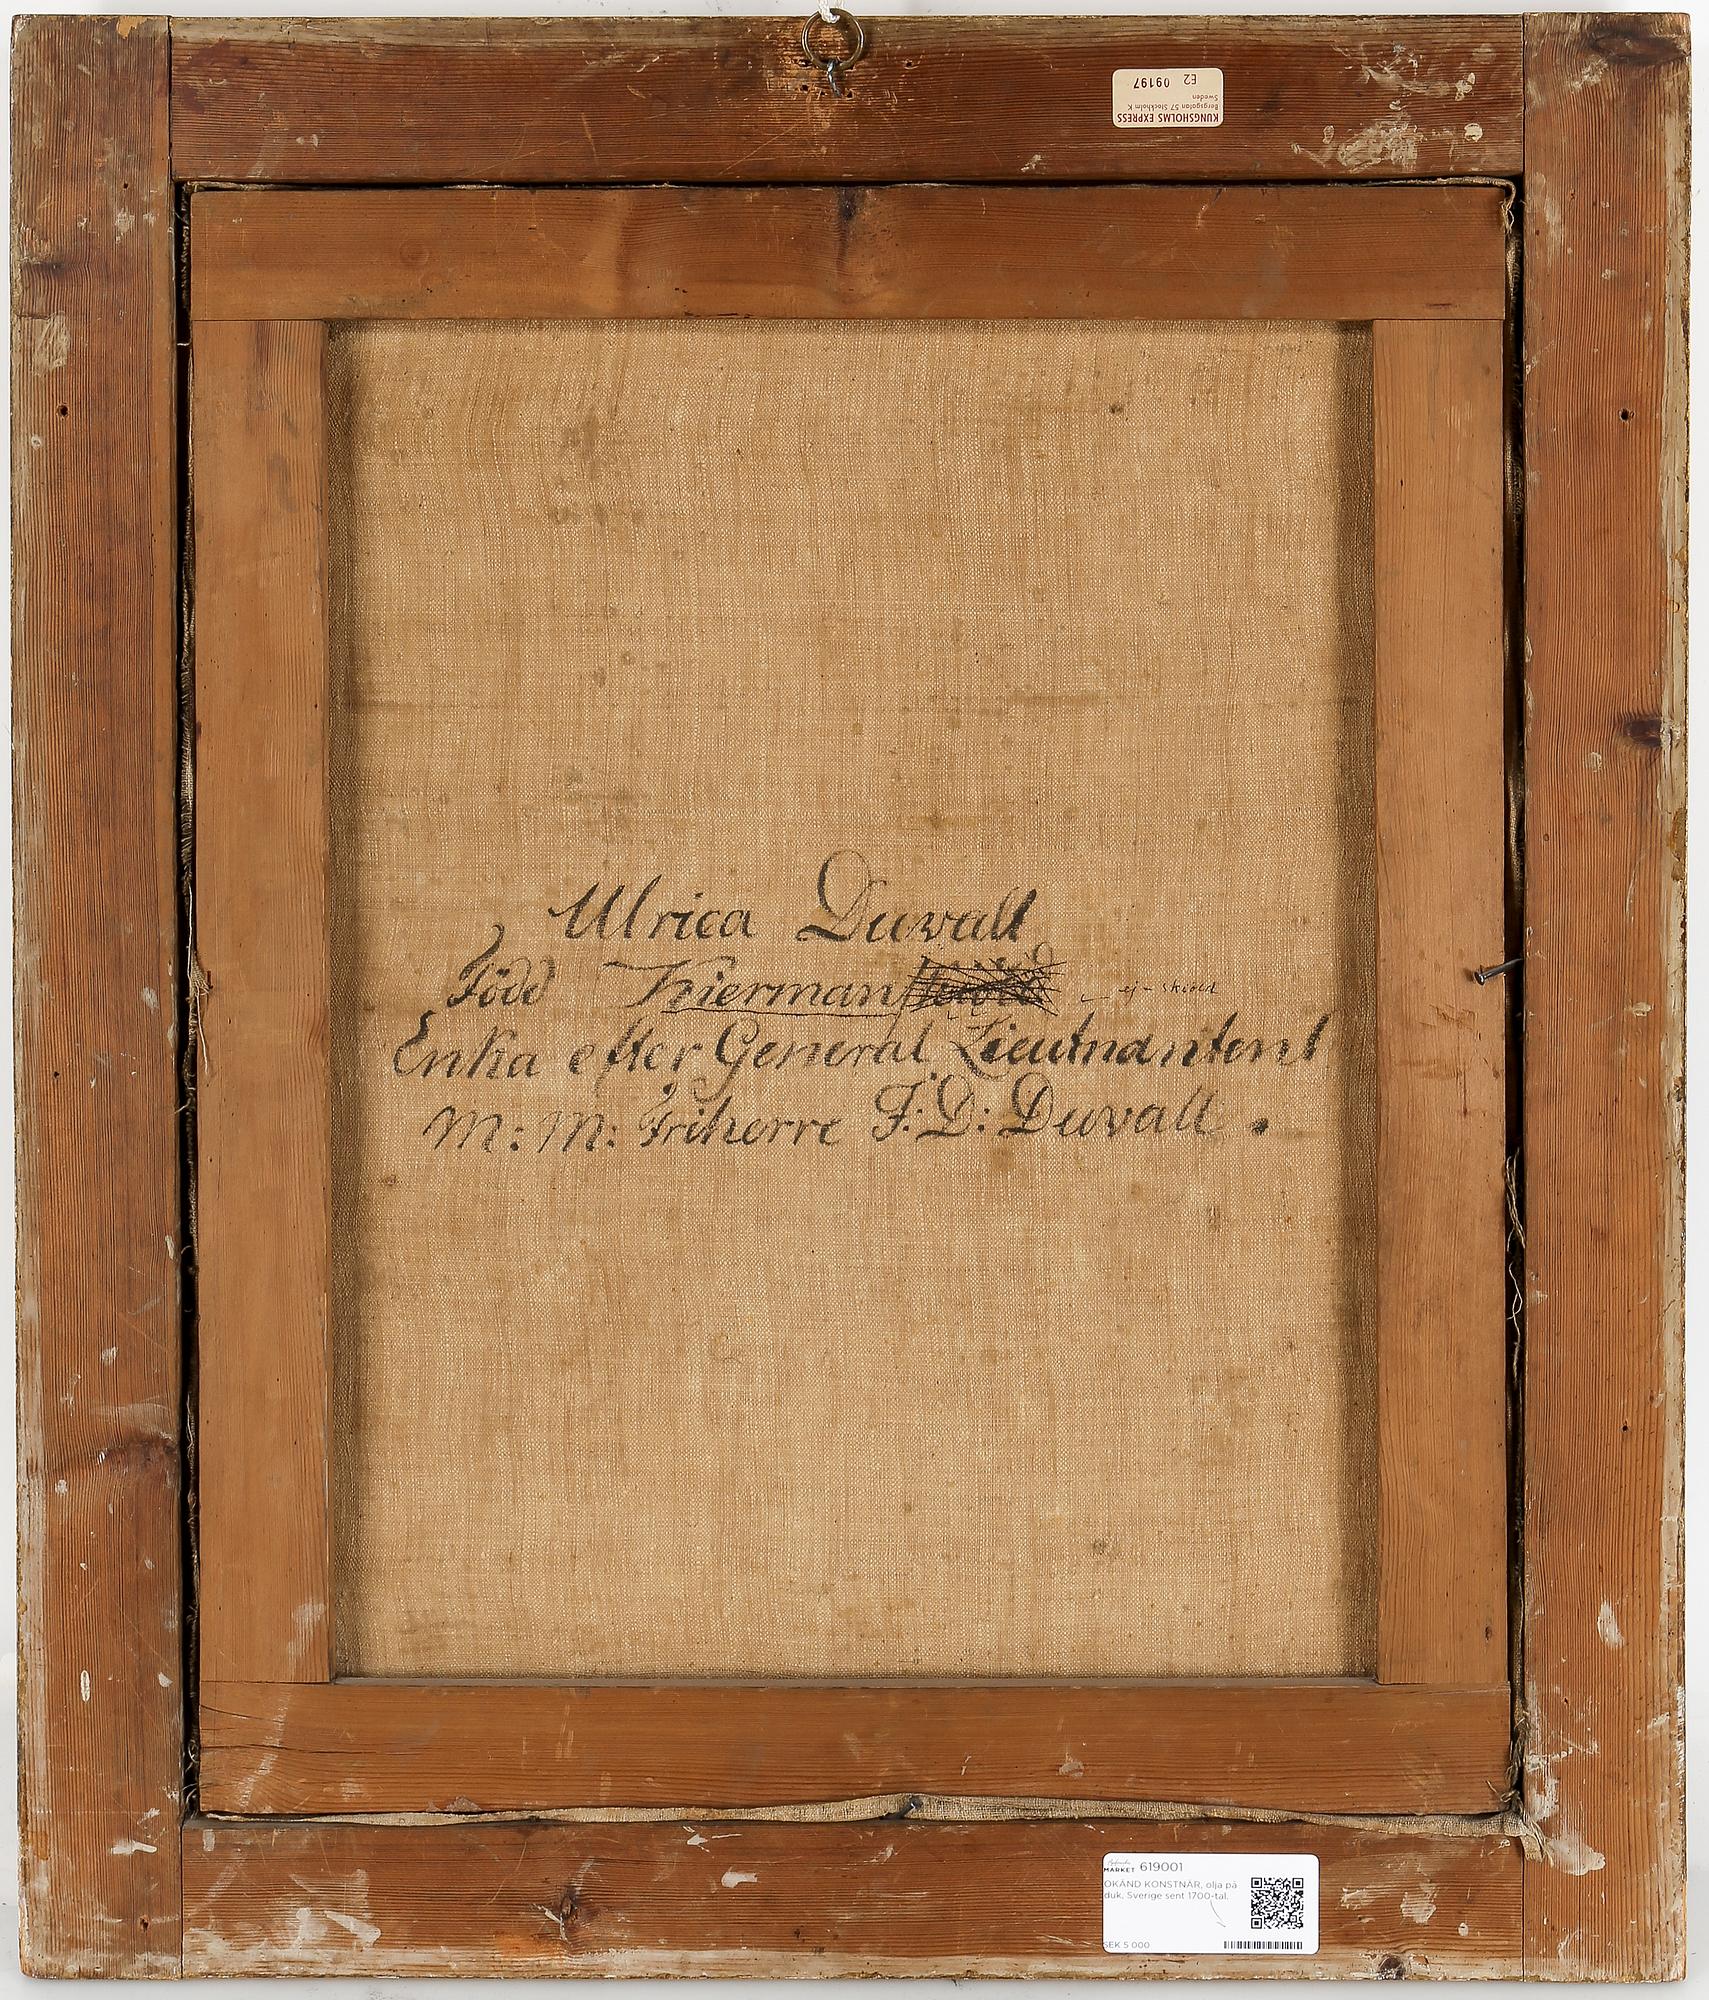 KUNGSHOLMS EXPRESS
Bergsgatan 57 Stockholm K
Sweden
E2 09197
Ulrica Duwall
Född Kierman ej - skiöld
Enka efter General Lieutnanten
M: M: Friherre F: D: Duvall.
MARKET 619001
OKÄND KONSTNÄR, olja på
duk, Sverige sent 1700-tal.
SEK 5 000